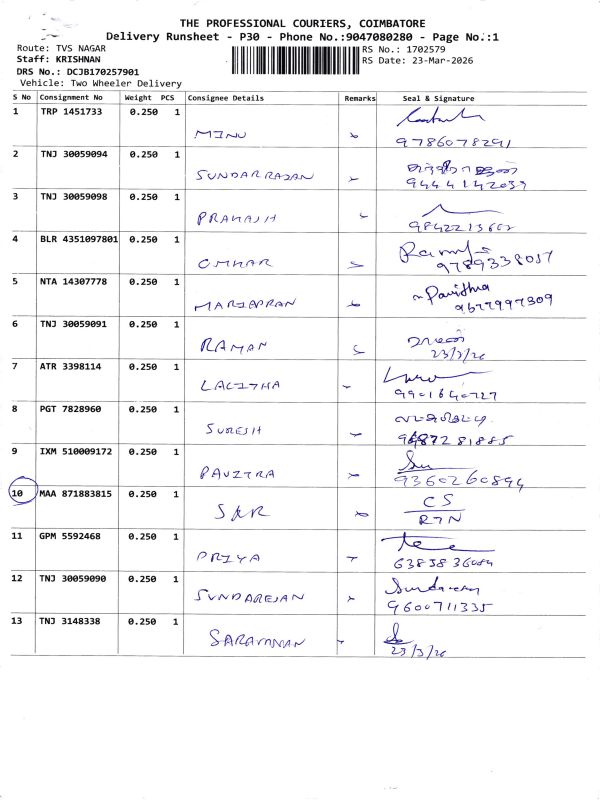 THE PROFESSIONAL COURIERS, COIMBATORE
Delivery Runsheet - P30 - Phone No.:9047080280 - Page No.:1
Route: TVS NAGAR
RS No.: 1702579
Staff: KRISHNAN
RS Date: 23-Mar-2026
DRS No.: DCJB170257901
Vehicle: Two Wheeler Delivery
S No Consignment No Weight PCS Consignee Details Remarks Seal & Signature
1 TRP 1451733 0.250 1
MINU 9786078291
2 TNJ 30059094 0.250 1
SUNDARRAJAN
3 TNJ 30059098 0.250 1
PRAKASH
4 BLR 4351097801 0.250 1
OMKAR
5 NTA 14307778 0.250 1
Pavithra
MARIAPPAN 9677997309
6 TNJ 30059091 0.250 1
RAMAN
23/3/26
7 ATR 3398114 0.250 1
LALITHA 9901640727
8 PGT 7828960 0.250 1
SURESH
9 IXM 510009172 0.250 1
PAVITRA 9360260894
10 MAA 871883815 0.250 1 CS
SKR RTN
11 GPM 5592468 0.250 1
PRIYA
12 TNJ 30059090 0.250 1
SUNDAREJAN 9600711335
13 TNJ 3148338 0.250 1
SARAVANAN 23/3/26